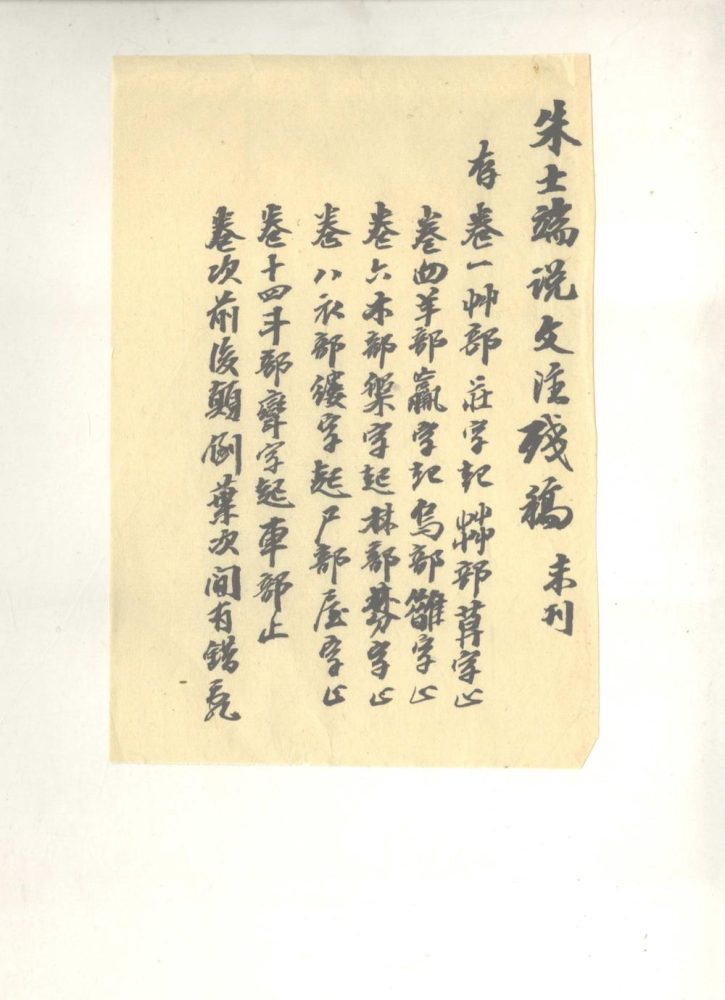 朱士端说文注残稿 未刊
存 卷一艸部莊字起茻部莽字止
卷四羊部羸字起烏部雛字止
卷六木部築字起林部棼字止
卷八衣部褸字起尸部屋字止
卷十四斗部字起車部止
卷次前後顛倒葉次间有錯亂